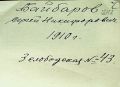 Байбаров
Сергей Никифорович
1910 г.
Слободская № 43.